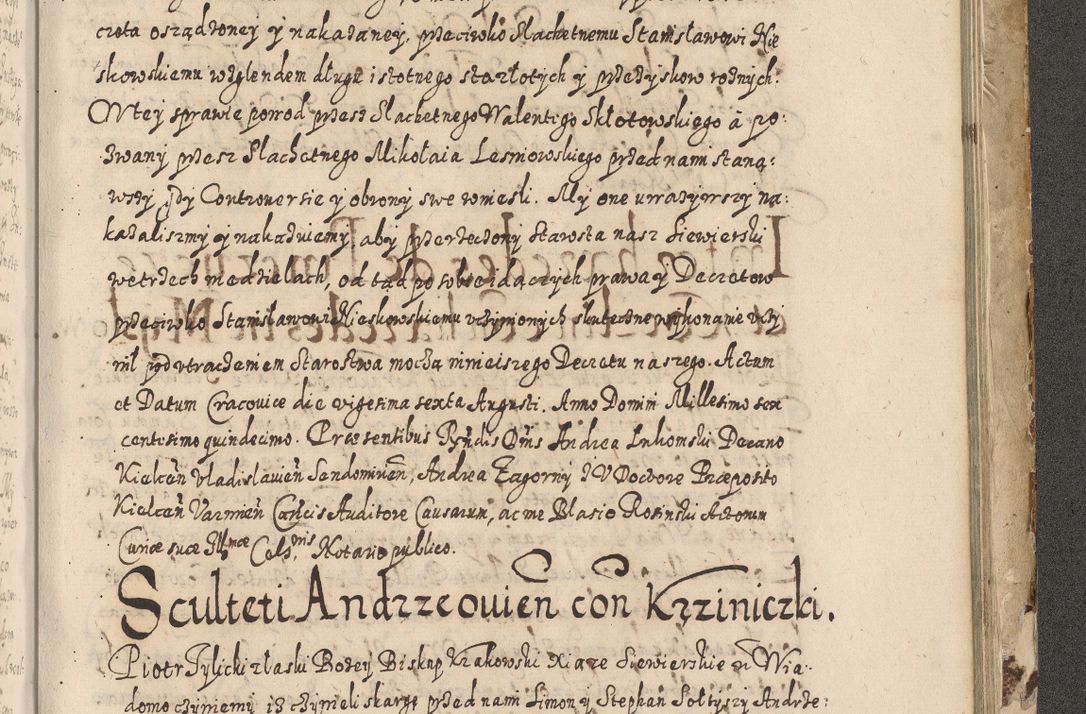 czota osządzoney y nakazaney, przeciwko Slachetnemu Stanisławowi Nie
skowskiemu względem długu istotnego starłotych y przezyskow roznych.
W tey sprawie powod przesz Slachetnego Walentego Skłotowskiego à po:
zwany przesz Slachetnego Mikołaia Lesniowskiego przed nami staną:
wszy Controuersie y obrony swe wniesli. My one uwazywszy na:
kazaliszmy y nakazuiemy, aby przerzeczony Starosta nasz Siewierski
we trzech niedzielach, od tąd po sobie idączych prawa y Decretow
przeciwko Stanisławowi Nieskowskiemu uczynionych skuteczne wykonanie uczy
nił pod utraczeniem Starostwa moczą ninieiszego Decretu naszego. Actum
et Datum Cracoviæ die vigesima sexta Augusti. Anno Domini Millesimo sex
centesimo quindecimo. Præsentibus Rndis Dnis Andrea Lukomski Decano
Kielcen Vladislauien Sendomirien, Andrea Zagorny IV Doctore Præposito
Kielcen Varmien Cancis Auditore Causarum, ac me Blasio Rosinski Actorum
Curiæ suæ Illmæ Cels,nis Notario publico.
Sculteti Andrzeouien con Krziniczki.
Piotr Tylicki z łaski Bozey Biskup Krakowski Xiaze Siewierskie etc Wia
domo czyniemy isz czynieli skargę przed nami Simon y Stephan Sołtyszy Andrze: